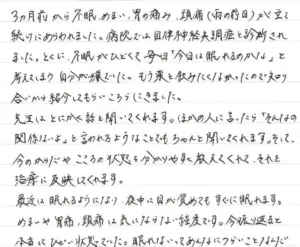 3ヵ月前から不眠、めまい、胃の痛み、頭痛(雨の前日)が立て
続けにあらわれました。病院では自律神経失調症と診断され
ました。とくに、不眠がひどくて毎日「今日は眠れるのかな」と
考えてしまう自分が嫌でした。もう薬を飲みたくなかったので知り
合いから紹介してもらいこちらにきました。
先生はとにかく話を聞いてくれます。ほかの人に言ったら「そんなの
関係ないよ」と言われるようなことでもちゃんと聞いてくれます。そして、
今のからだやこころの状態を分かりやすく教えてくれて、それを
治療に反映してくれます。
最近は眠れるようになり、夜中に目が覚めてもすぐに眠れます。
めまいや胃痛、頭痛は気にならない程度です。今振り返ると
本当にひどい状態でした。眠れないってあんなにつらいことなんだ